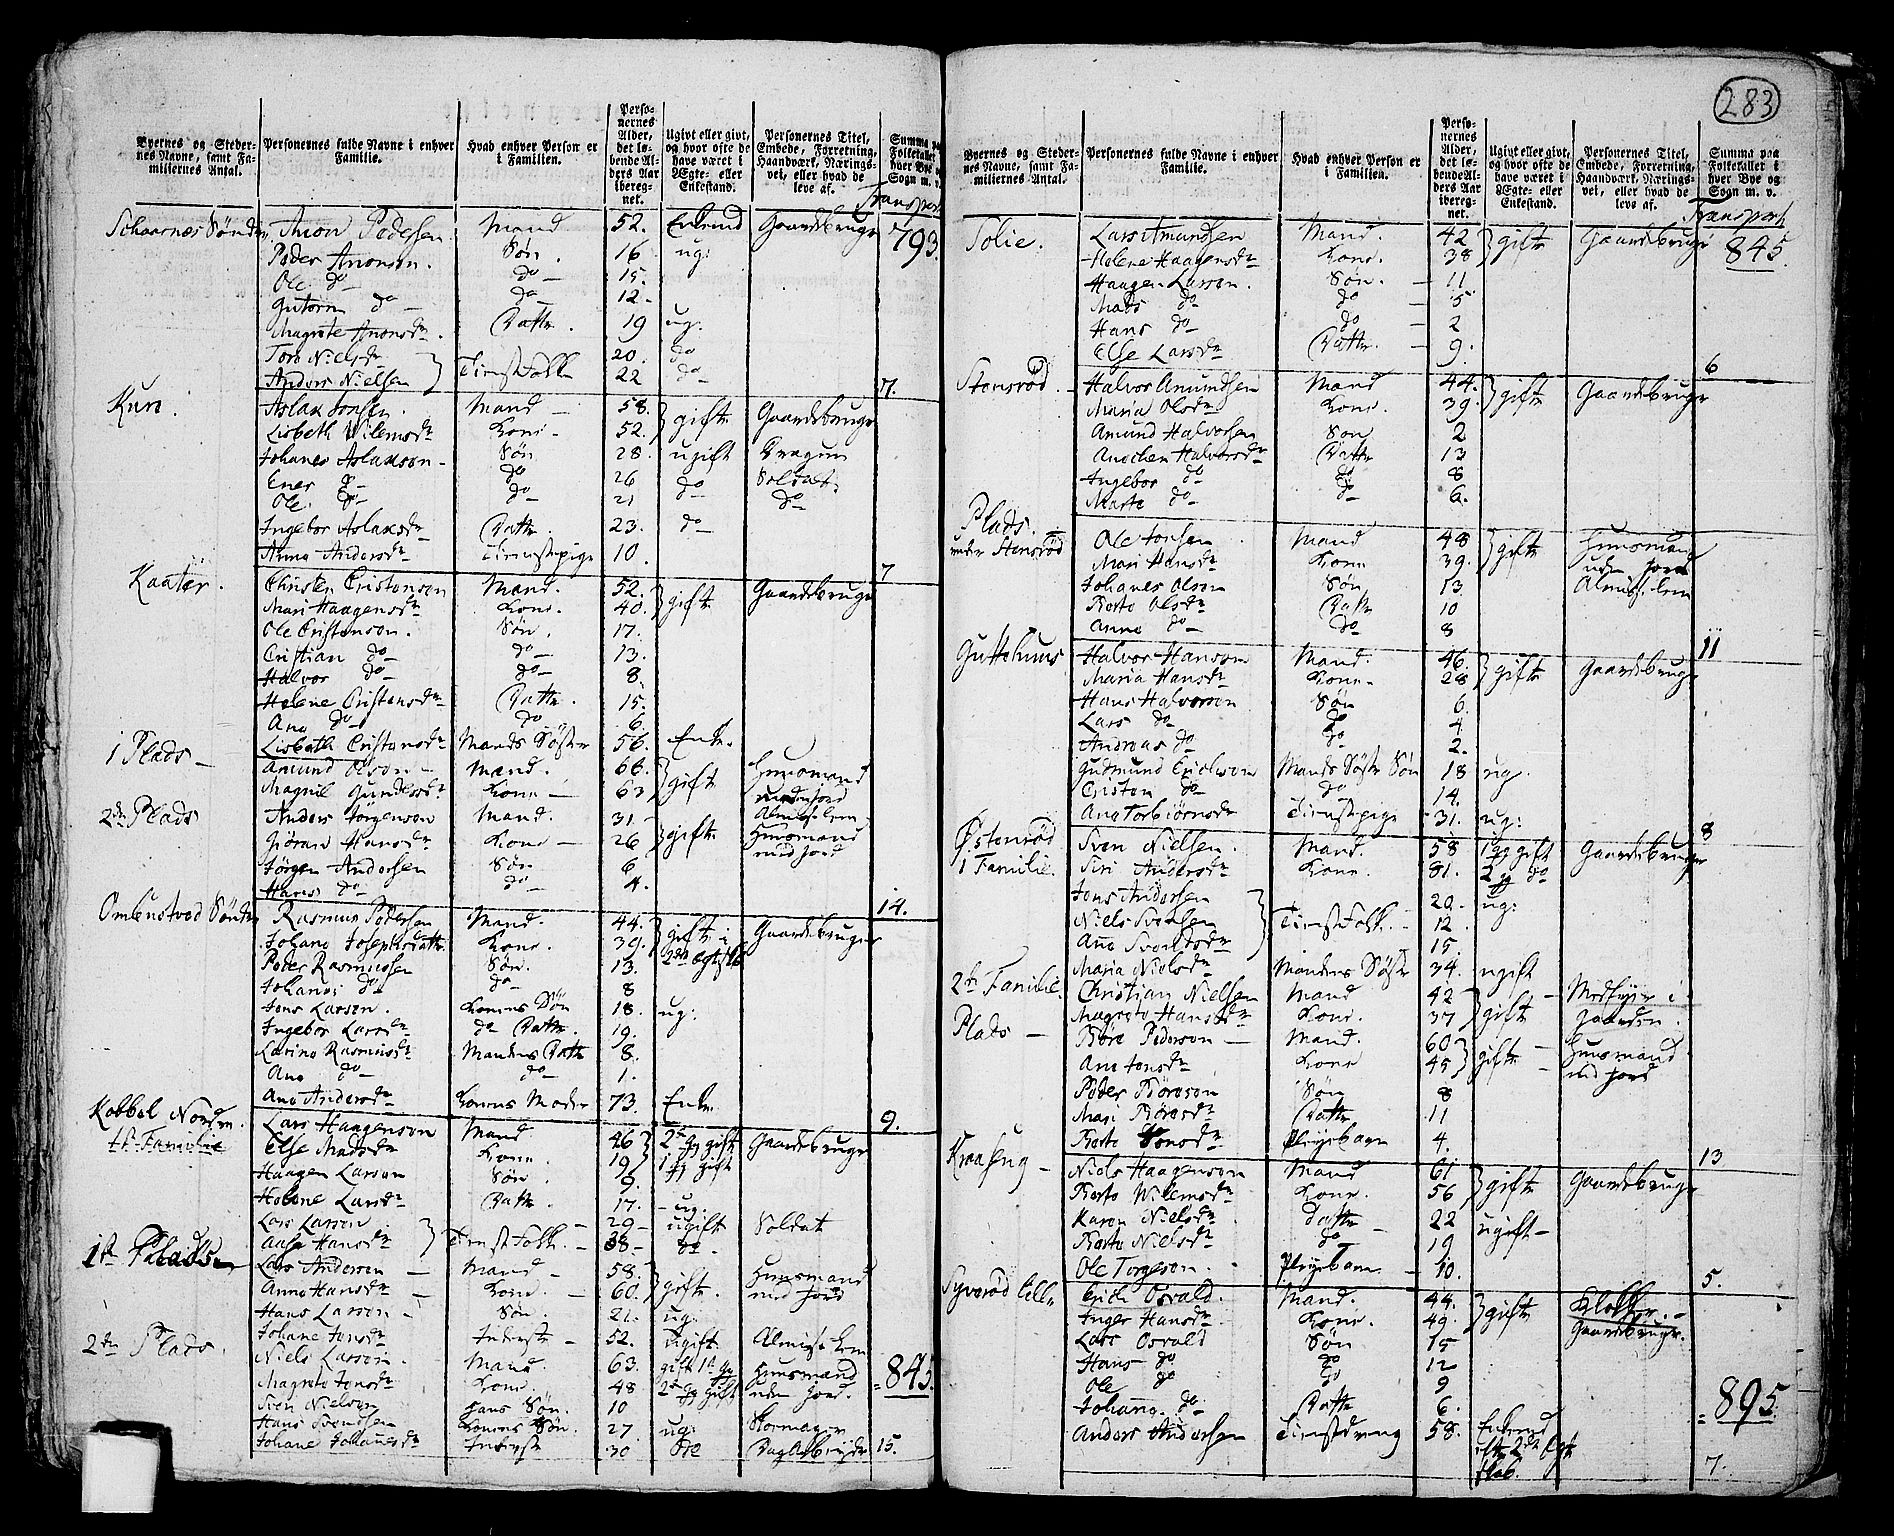 283
Byernes og Stedernes Navne, samt Familiernes Antal.
Personernes fulde Navne i enhver Familie.
Hvad enhver Person er i Familien.
Personernes Alder, det løbende Alders Aar iberegnet.
Ugivt eller givt, og hvor ofte de have været i Ægte- eller Enkestand.
Personernes Titel, Embede, Forretning, Haandværk, Næringsvei, eller hvad de leve af.
Summa paa Folketallet i hver Bye og Sogn m. v.
Transport
Schaarnæs Søndre Anon Pedersen Mand 52. Enkemd Gaardbruger 793.
Peder Anonsen. Søn. 16 ug:
Ole do do 15.
Gutorm do do 12.
Magrete Anonsdr. Datter. 19 ug:
Tore Nielsdr } Tienstefolk 20. do
Anders Nielsen 22 do 7.
Kure. Aslak Jonsen. Mand 58. } gifte Gaardbruger
Lisbeth Wilemsdr Kone 52.
Johanes Aslaksen Søn 28. ugift Dragun
Ener do do 26 do Soldat
Ole. do do 21 do
Ingebor Aslaksdr Datter. 23. do
Anne Andersdr Tienstepige 10. 7
Kaatier. Christen Cristensen Mand. 52. } gifte Gaardbruger
Mari Haagensdr Kone. 40.
Ole Cristensen. Søn. 17.
Cristian do do 13.
Halvor do do 8.
Helene Cristensdr Datter. 15.
Ane do do 6
Lisbeth Cristensdr Mands Søster 56. Enke
1 Plads Amund Olsen Mand. 66. } gift Huusmand
Magnil Gundersdr Kone 63 uden jord
2de Plads Anders Jörgensen Mand. 31. } gifte Huusmand
Giöran Hansdr Kone 26 med jord
Jörgen Andersen Søn 6
Hans do do 4. 14.
Ombustved Søndre Rasmus Pedersen Mand. 44. } gifte i 2det Egteskab Gaardbruger
Johane Josephsdatter Kone. 39.
Peder Rasmussen Søn. 13.
Johanes do do 8
Jens Larsen. Konens Søn 18. ug:
Ingebor Larsdr do Datter. 19.
Larine Rasmusdr Mandens Datter 8.
Ane do do 1.
Ane Andersdr Konens Moder 73. Enke 9.
Kobbel Norden. Lars Haagensen Mand 46 } 2de gg gift Gaardbruger
1te Familie Else Madsdr Kone. 19 1 gg gift
Haagen Larsen Søn. 9.
Helene Larsdr Datter 17. ug:
Lars Larsen } Tienstefolk. 29 ugift Soldat
Aase Hansdr 38 do
1te Plads Lars Andersen Mand 58. } gifte. Huusmand
Anne Hansdr Kone. 60. med jord
Hans Larsen Søn. 21. ug:
Johane Jensdr Inderste 52. ugift Almisse lem
2de Plads. Niels Larsen. Mand 63. gift 1te gg Huusmand 845.
Magrete Jensdr Kone. 48 2de gg gift uden jord.
Sven Nielsen hans Søn. 10
Hans Svendsen Konens Søn. 27 ug:
Johane Johanesdr Inderste 30 15.
Byernes og Stedernes Navne, samt Familiernes Antal.
Personernes fulde Navne i enhver Familie.
Hvad enhver Person er i Familien.
Personernes Alder, det løbende Alders Aar iberegnet.
Ugivt eller givt, og hvor ofte de have været i Ægte- eller Enkestand.
Personernes Titel, Embede, Forretning, Haandværk, Næringsvei, eller hvad de leve af.
Summa paa Folketallet i hver Bye og Sogn m. v.
Transport
Solie. Lars Amundsen Mand. 42 } gifte Gaardbruger 845.
Helene Haagensdr Kone. 38
Haagen Larsen. Søn. 11
Mads do do 5
Hans do do 2
Else Larsdr Datter 9. 6
Stensrød Halvor Amundsen Mand 44. } gifte Gaardbruger
Maria Olsdr Kone. 39.
Amund Halvorsen Søn 2
Anochen Halvorsdr Datter 13
Ingebor do do 8
Marte do do 6.
Plads. Ole Jonsen Mand 48 } gifte Huusmand
under Stensrød Mari Hansdr Kone 39. uden jord
Johanes Olsen Søn 13 Almisselem
Berte Olsdr Datter 10
Anne do do 8 11
Guttehuus Halvor Hansen Mand. 46. } gifte Gaardbruger
Maria Hansdr Kone 28
Hans Halvorsen Søn 6.
Lars do do 4.
Andreas do do 2.
Gudmund Ericksen Mands Søster Søn 18 ug.
Cristen do do 14.
Ane Torbiörnsdr Tienstepige 31. ug: 8
Østenrød Sven Nielsen. Mand. 58 1 gg gift Gaardbruger
1 Familie. Siri Andersdr Kone. 81. 2 gg do
Jens Andersen } Tienstefolk. 20. ug:
Niels Svensen 12.
Ane Svendsdr 15.
Maria Nielsdr Mandens Søster 34. ugift
2de Familie. Christian Nielsen Mand 42 } gifte Medhjer i
Magrete Hansdr Kone. 37 Gaarden.
Plads Böre Pedersen Mand. 60 } gifte Huusmand
Ane Jonsdr Kone 45 med jord
Peder Böresen Søn 8
Mari Börosdr Datter 11
Berte Pleiebarn 4. 13
Kraaseng Niels Haagensen Mand 61 } gifte Gaardbruger
Berte Wilemsdr Kone. 56
Karen Nielsdr Datter 22 ugift
Berte Nielsdr do 19
Ole Torgesen. Pleiebarn 10. 5.
Syverød lille Erich Osvald. Mand. 44. } gifte Klokker
Inger Hansdr Kone. 49. Gaardbruger.
Lars Osvald Søn 15
Hans do do 12
Ole do do 9
Johane. do Datter 6.
Anders Andersen Tienstedreng 58. Enkemd efter 2det Egteskab. 895
7.